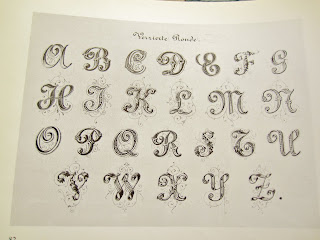 Verzierte Ronde.
A B C D E F G
H I K L M N
O P Q R S T U
V W X Y Z.